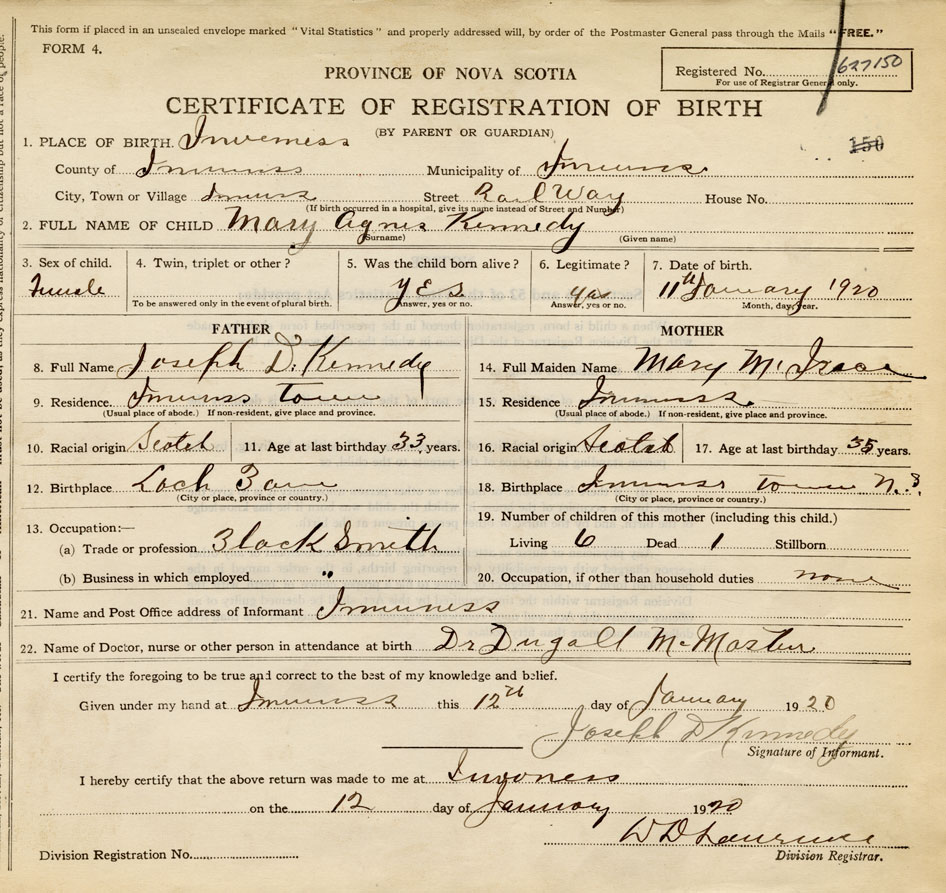 This form if placed in an unsealed envelope marked "Vital Statistics" and properly addressed will, by order of the Postmaster General pass through the Mails "FREE."
FORM 4.
Registered No. 627150
For use of Registrar General only.
PROVINCE OF NOVA SCOTIA
CERTIFICATE OF REGISTRATION OF BIRTH
(BY PARENT OR GUARDIAN)
150
1. PLACE OF BIRTH. Inverness
County of Inverness Municipality of Inverness
City, Town or Village Inverness Street Rail Way House No.
(If birth occurred in a hospital, give its name instead of Street and Number)
2. FULL NAME OF CHILD Mary Agnes Kennedy
(Surname) (Given name)
3. Sex of child. 4. Twin, triplet or other? 5. Was the child born alive? 6. Legitimate? 7. Date of birth.
Female yES yes 11th January 1920
To be answered only in the event of plural birth. Answer, yes or no. Answer, yes or no. Month, day, year.
FATHER MOTHER
8. Full Name Joseph D. Kennedy 14. Full Maiden Name Mary Mc Isaac
9. Residence. Inverness town 15. Residence Inverness
(Usual place of abode.) If non-resident, give place and province. (Usual place of abode.) If non-resident, give place and province.
10. Racial origin Scotch 11. Age at last birthday 33 years. 16. Racial origin Scotch 17. Age at last birthday 35 years.
12. Birthplace Loch Ban 18. Birthplace Inverness town N.S.
(City or place, province or country.) (City or place, province or country.)
13. Occupation:— 19. Number of children of this mother (including this child.)
(a) Trade or profession Black Smith Living 6 Dead 1 Stillborn
(b) Business in which employed " 20. Occupation, if other than household duties none
21. Name and Post Office address of Informant Inverness
22. Name of Doctor, nurse or other person in attendance at birth Dr Dugall McMaster
I certify the foregoing to be true and correct to the best of my knowledge and belief.
Given under my hand at Inverness this 12th day of January 1920
Joseph D Kennedy
Signature of Informant.
I hereby certify that the above return was made to me at Inverness
on the 12 day of January 1920
W D Lawrence
Division Registration No. Division Registrar.